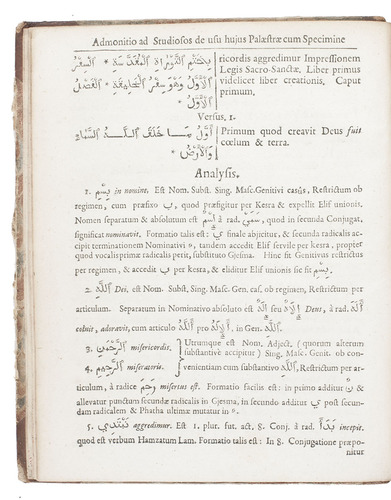 Admonitio ad Studiosos de usu hujus Palæstræ cum Specimine
بختم التوراة المقدسة * السفر ricordis aggredimur Impressionem
Legis Sacro-Sanctæ. Liber primus
الأول وهو سفر الخليقة * الفصل videlicet liber creationis. Caput
الأول * primum.
Versus, 1.
أول ما خلق الله السماء Primum quod creavit Deus fuit
والأرض * cœlum & terra.
Analysis.
1. بِسْمِ in nomine. Est Nom. Subst. Sing. Masc. Genitivi casûs, Restrictum ob
regimen, cum præfixo ب, quod præfigitur per Kesra & expellit Elif unionis.
Nomen separatum & absolutum est اسم à rad. سمي, quod in secunda Conjugat,
significat nominavit. Formatio talis est: ي finale abjicitur, & secunda radicalis ac-
cipit terminationem Nominativi °, tandem accedit Elif servile per kesra, propter
quod vocalis primæ radicalis perit, substituto Gjesma. Hinc fit Genitivus restrictus
per regimen, & accedit ب per kesra, & eliditur Elif unionis sic fit بسم.
2. الله Dei, est Nom. Subst, Sing. Masc. Gen. cas. ob regimen, Restrictum per
articulum. Separatum in Nominativo absoluto est اله seu الاه Deus, à rad. اله
coluit, adoravit, cum articulo الله pro الاله, in Gen. الله.
3. الرحمن misericordis. Utrumque est Nom. Adject. (quorum alterum
substantivè accipitur) Sing. Masc. Genit. ob con-
4. الرحيم miseratoris. venientiam cum substantivo الله, Restrictum per ar-
ticulum, à radice رحم misertus est. Formatio facilis est: in primo additur ن &
allevatur punctum secundæ radicalis in Gjesma, in secundo additur ي post secun-
dam radicalem & Phatha ultimæ mutatur in °.
5. نبتدي aggredimur. Est 1. plur. fut. act. 8. Conj. à rad. بدأ incepit.
quod est verbum Hamzatum Lam. Formatio talis est: In 8. Conjugatione præpo-
nitur